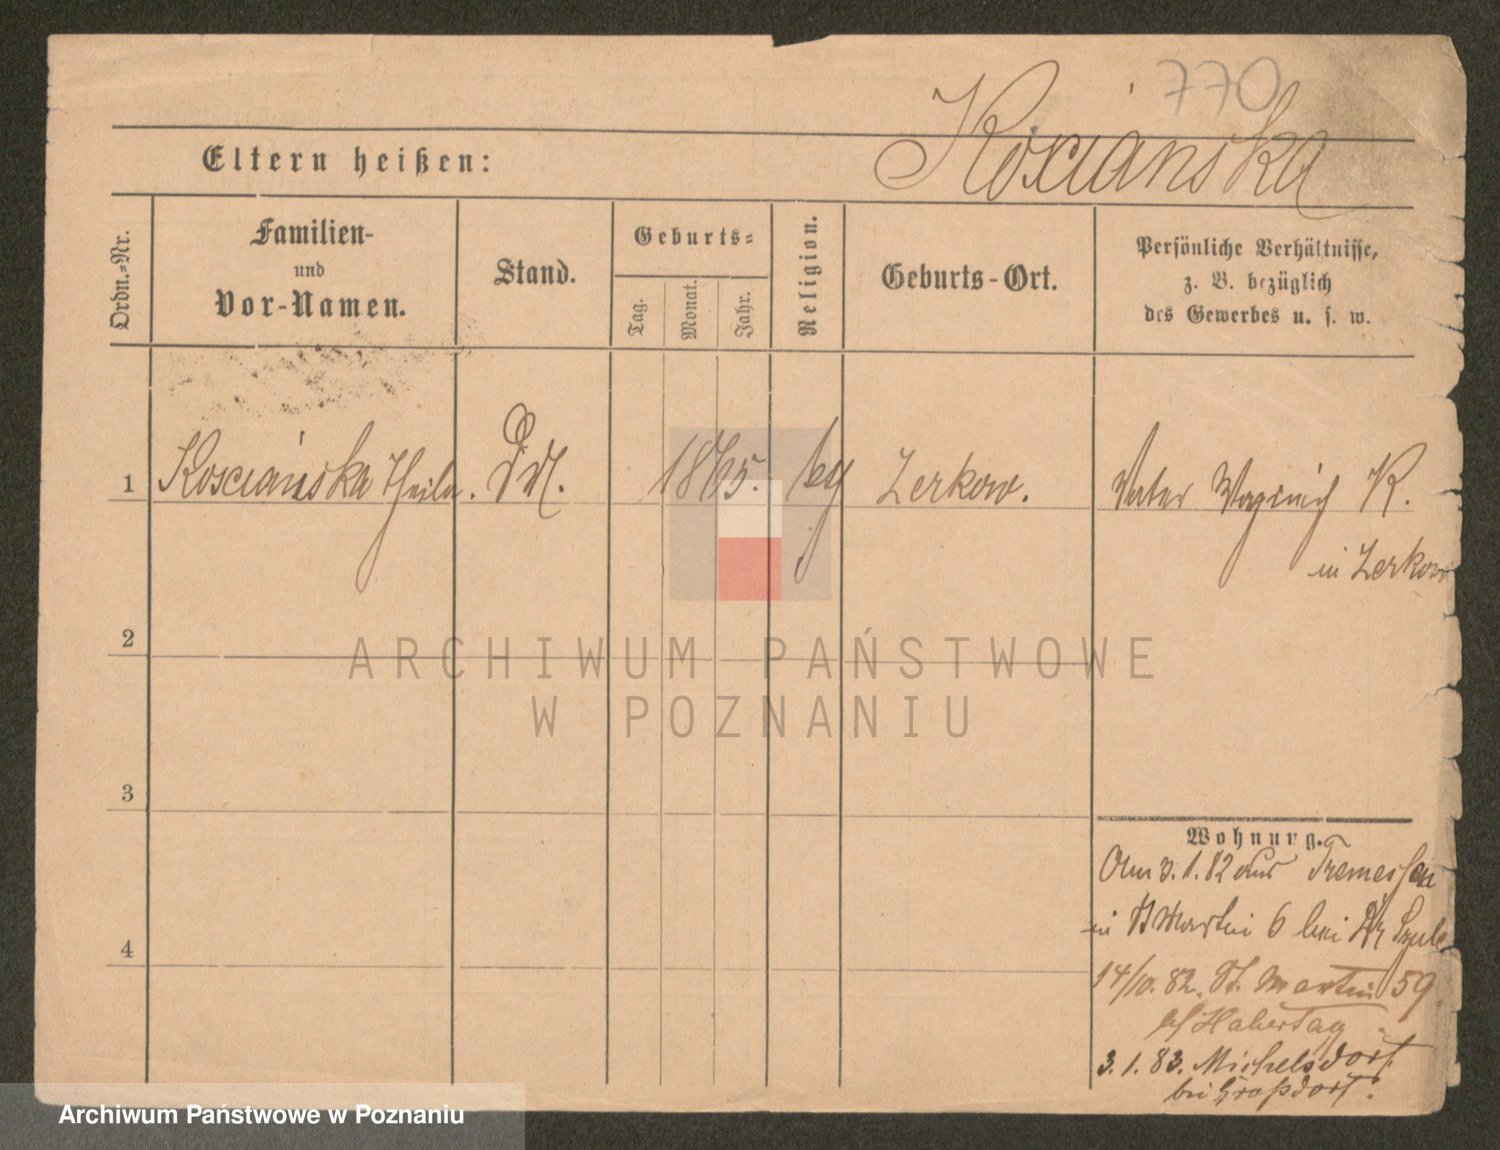 770
Kościańska
Eltern heißen:
Ordn.-Nr.
Familien-
und
Vor-Namen.
Stand.
Geburts-
Tag.
Monat.
Jahr.
Religion.
Geburts-Ort.
Persönliche Verhältnisse,
z. B. bezüglich
des Gewerbes u. s. w.
1
Kościańska
1865.
Zerkow.
Vater K.
in Zerkow
2
ARCHIWUM PAŃSTWOWE
W POZNANIU
3
Wohnung.
Am 3.1.82 aus Tremessen
in St Martin 6 bei Dr
4
14/10. 82. St. Martin 59.
b/ Habertag
3.1.83. Michelsdorf
bei Großdorf.
Archiwum Państwowe w Poznaniu